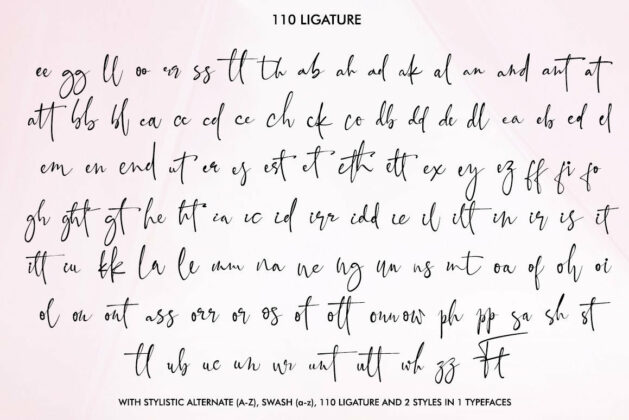 110 LIGATURE
ee gg ll oo rr ss tt th ab ah ad ak al an and ant at
att bb bl ca cc cd ce ch ck co db dd de dl ea eb ed el
em en end et er es est et eth ett ex ey ez ff fi fo
gh ght gt he ht ia ic id irr idd ie il ill in ir is it
itt iu kk la le mm na ne ng nn ns nt oa of oh oi
ol on ont ass orr or os ot ott ow ph pp sa sh st
tl ub uc un ur unt utt wh zz Ft
WITH STYLISTIC ALTERNATE (A-Z), SWASH (a-z), 110 LIGATURE AND 2 STYLES IN 1 TYPEFACES